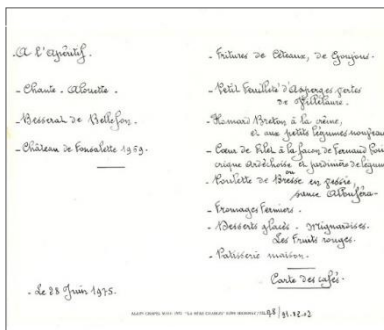 - A l'Apéritif.
- Chante-Alouette.
- Besserat de Bellefon.
- Château de Fonsalette 1959.
- Le 28 Juin 1975.
- Fritures de Céteaux, de Goujons.
- Petit Feuilleté d'Asperges vertes
de Villelaure.
- Homard Breton à la crème,
et aux petits légumes nouveaux
- Cœur de Filet à la façon de Fernand
crique Ardéchoise et jardinière de légumes
ou
- Poulette de Bresse en vessie,
sauce Albuféra.
- Fromages Fermiers.
- Desserts glacés. Mignardises.
Les Fruits rouges.
- Patisserie maison.
Carte des cafés.
ALAIN CHAPEL "LA MERE CHARLES" 01390 MIONNAY TEL. 78/91.82.02